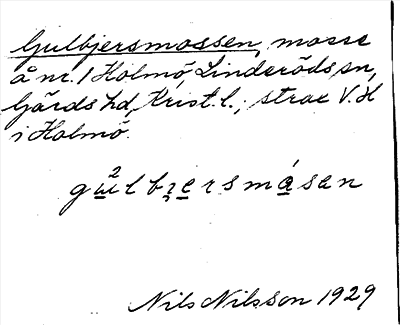 Gulbjersmossen, mosse
å nr. 1 Holmö, Linderöds sn,
Gärds hd, Krist. l.; strax V. H
i Holmö.
gu²lbʒersmåsen
Nils Nilsson 1929